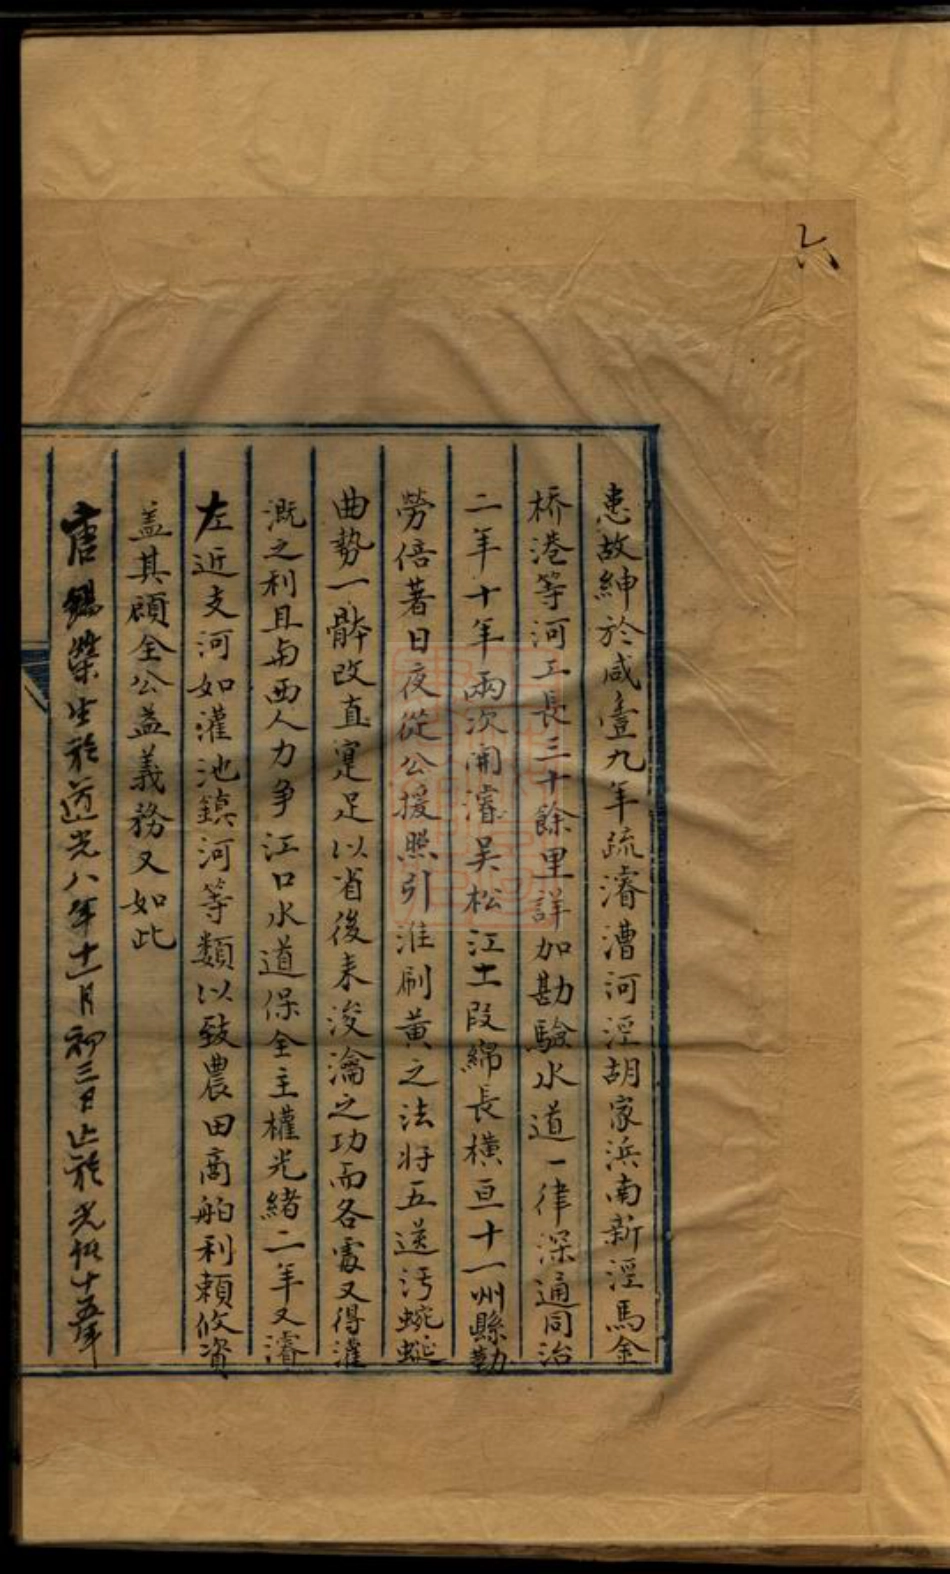 六
患故紳於咸豐九年疏濬漕河涇胡家浜南新涇馬金
橋港等河工長三十餘里詳加勘驗水道一律深通同治
二年十年兩次開濬吳松江土段綿長橫亘十一州縣勤
勞倍著日夜從公援照引淮刷黃之法將五送汚蜿蜒
曲勢一骵改直寔足以省後来浚瀹之功而各處又得灌
溉之利且与西人力争江口水道保全主權光緒二年又濬
左近支河如灌池鎮河等類以致農田商舶利賴攸資
盖其顧全公益義務又如此
唐錫榮生於道光八年十一月初三日止於光緒十五年